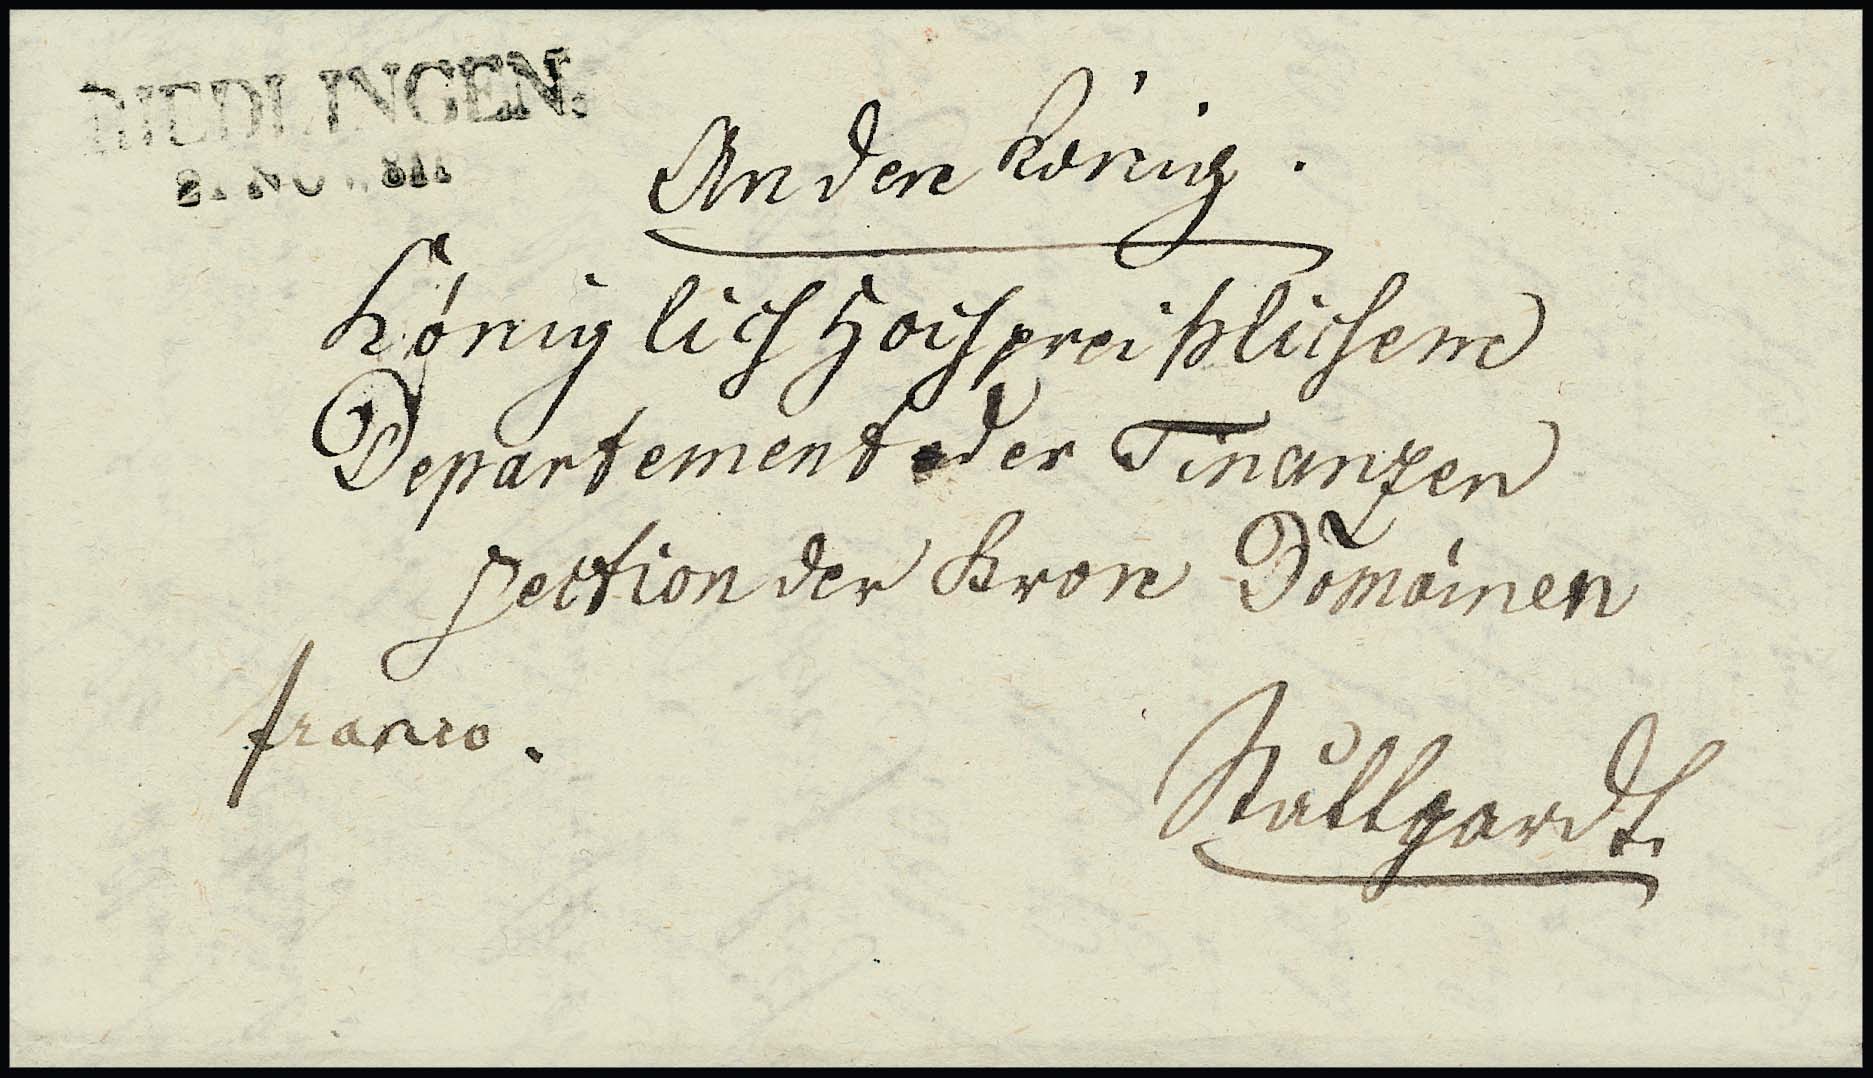 RIEDLINGEN.
2. NOV. 811
An den König.
Königlich Hochpreißlichem
Departement der Finanzen
Section der Kron Domäinen
franco.
Stuttgardt.